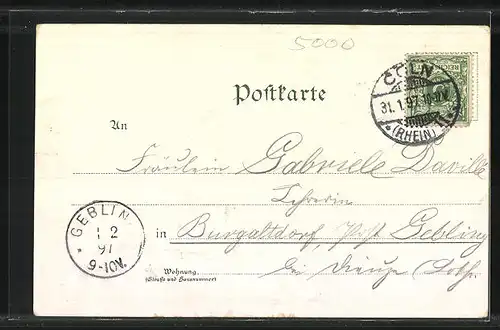 5000
CÖLN
31.1.97.10-11V.
*(RHEIN)11
Postkarte
An
Fräulein Gabriele Daville
Lehrerin
GEBLIN
1 2
97
9-10V.
in Burgaltdorf, Post Gebling
bei Dieuze Lothr.
Wohnung
(Straße und Hausnummer)